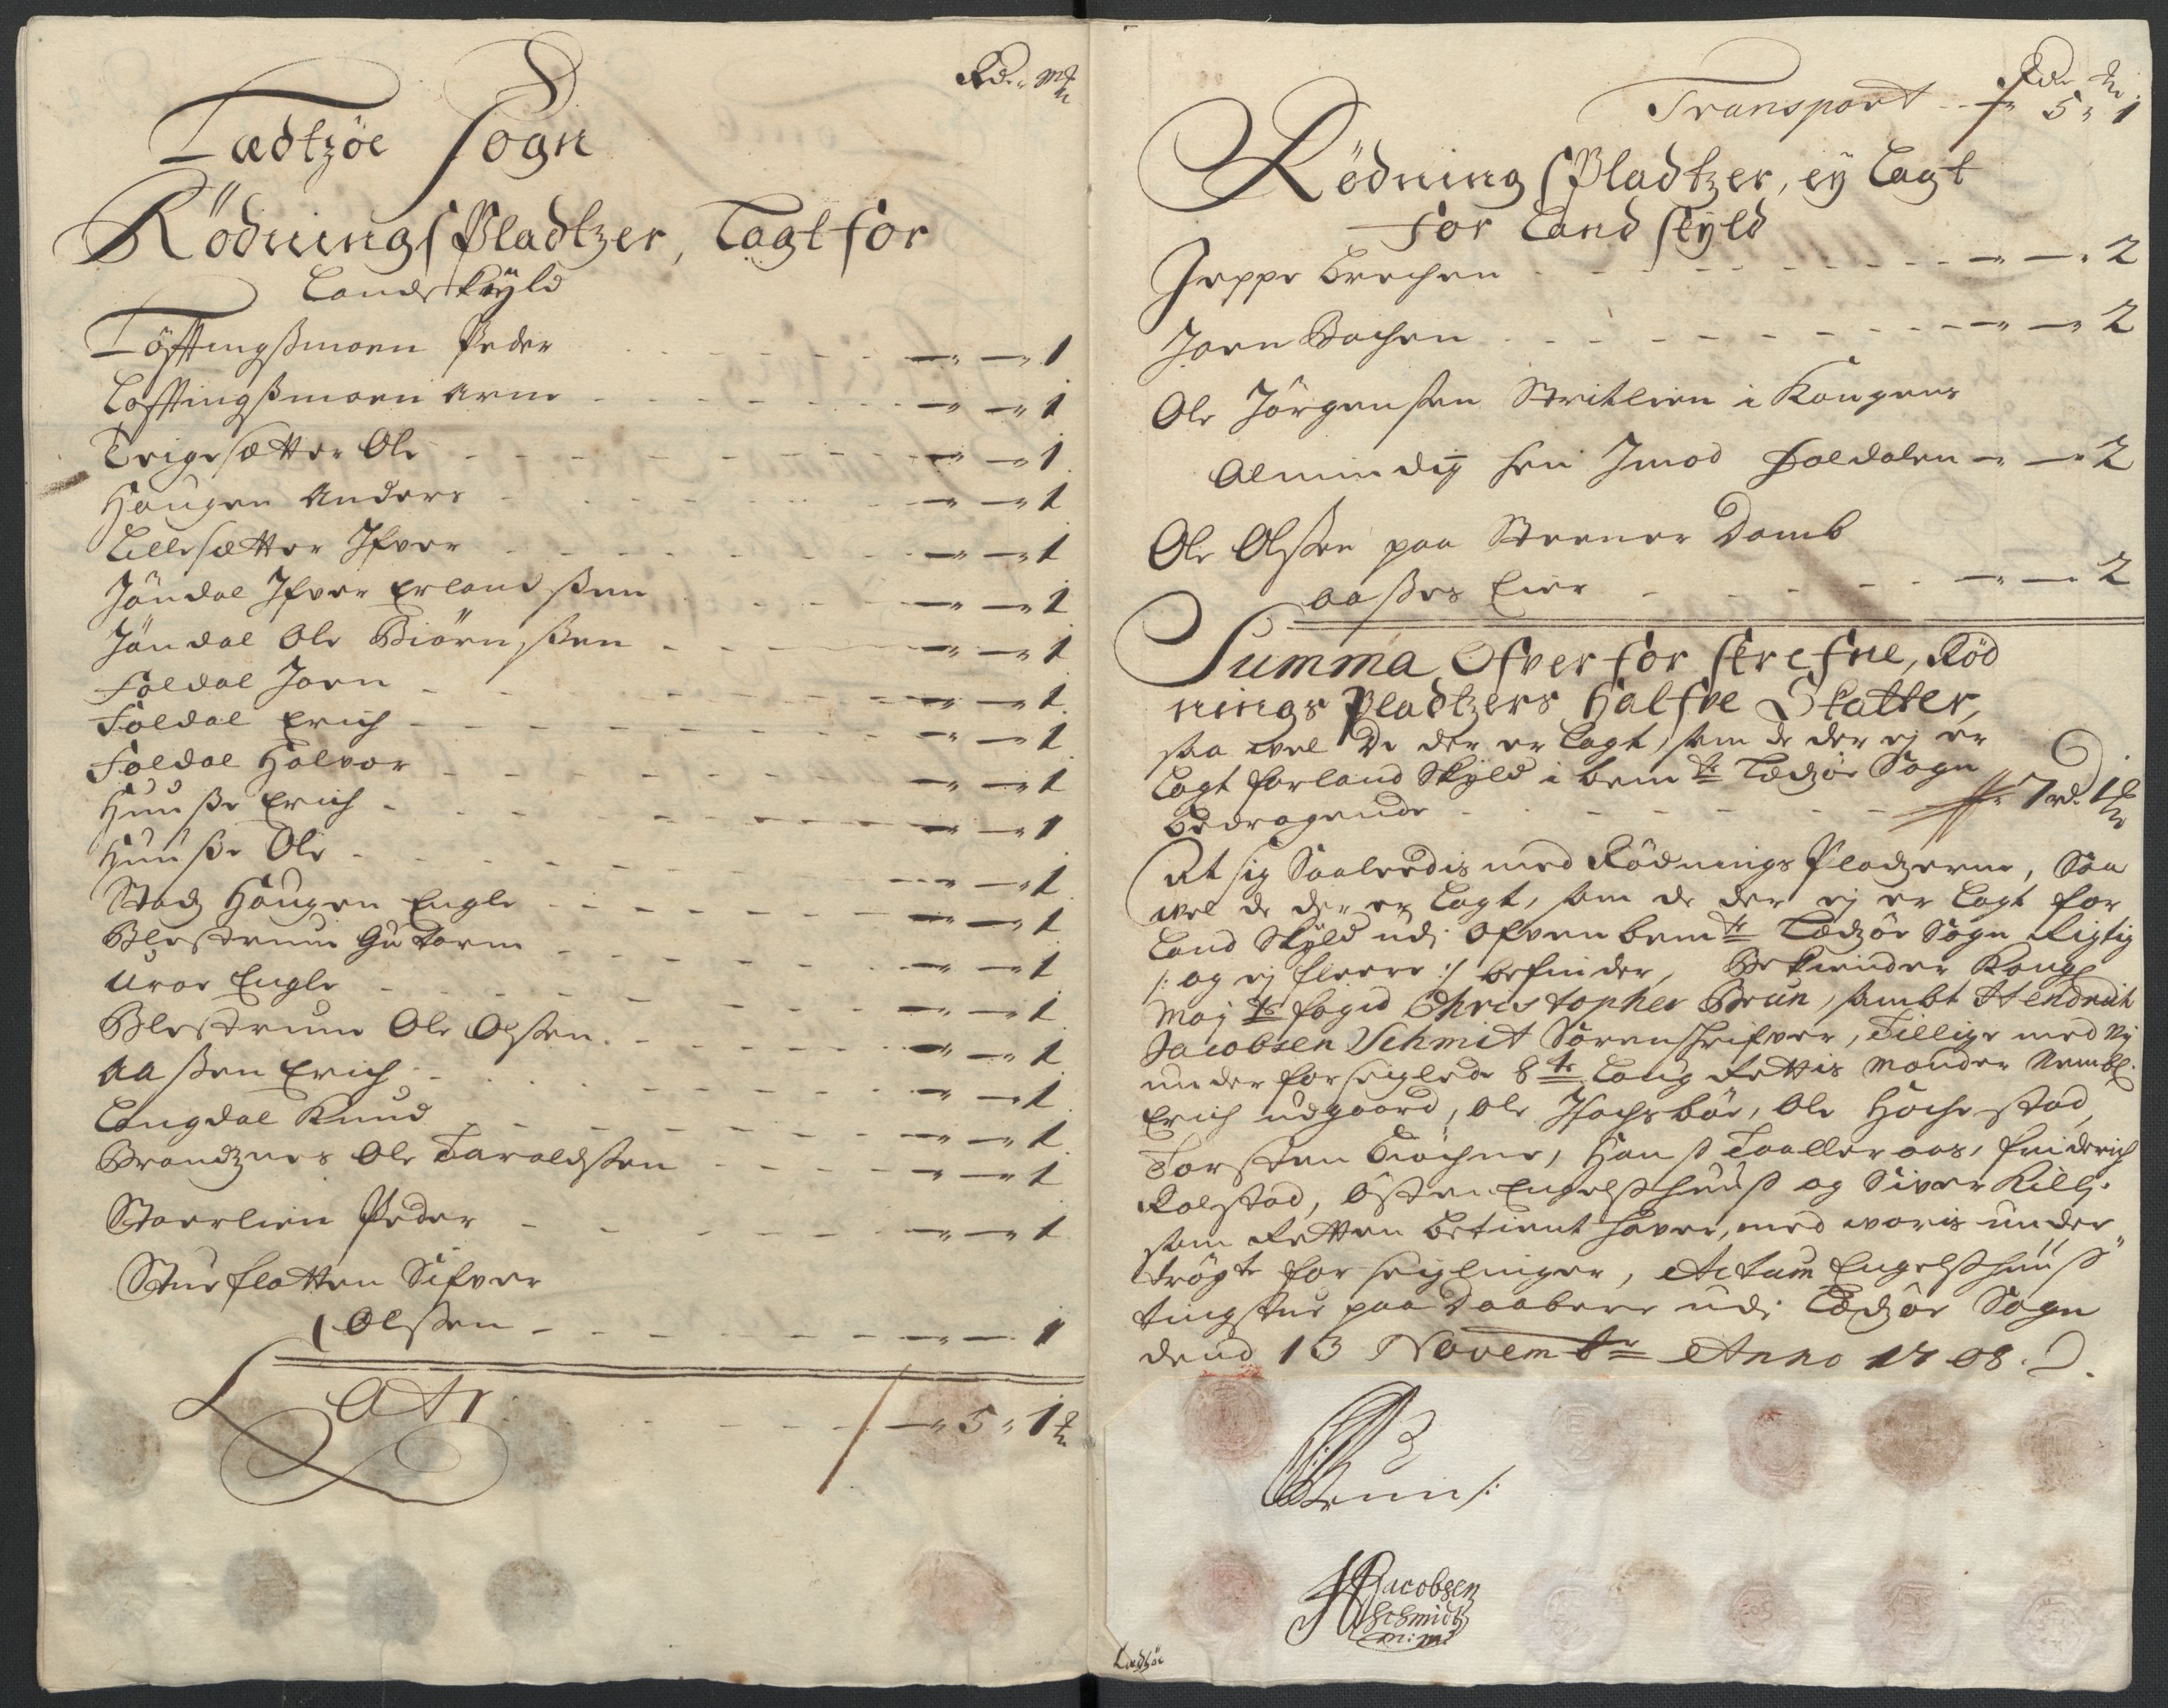 Rd: mk
Lædtzöe Sogn
Rödnings Pladtzer, Lagt for
Landskyld
Löfftingsmoen Peder - 1
Löfftingsmoen Arne - 1
Trigesætter Ole - 1
Haugen Anders - 1
Lillesætter Ifver - 1
Jöndal Ifver Erlandssen - 1
Jöndal Ole Biörnssen - 1
Foldal Joen - 1
Foldal Erich - 1
Foldal Halvor - 1
Hunsse Erich - 1
Hunsse Ole - 1
Stads Haugen Engle - 1
Blestrum Gutorm - 1
Uror Engle - 1
Blestrum Ole Olssen - 1
Aassen Erich - 1
Langdal Knud - 1
Brandznes Ole Taraldssen - 1
Staerlien Peder - 1
Stueflotten Sifver
Olssen - 1
Latr - 5 " 1 mk
Rdr mk
Transport - 5 " 1
Rödnings Pladtzer, ey Lagt
for Landskyld
Jeppe Brechen - 2
Joen Bachen - 2
Ole Jörgenssen Stritlien i Kongens
Alminding hen Imod Foldalen - 2
Ole Olssen paa Steener Damb
Aasses Eier - 2
Summa Ofver for skrefne, Röd
nings Pladtzers Halfve Skatter,
saa vel De der er Lagt, som de der ej er
Lagt for land Skyld i bemte Lædzöe Sogn
Bedragende - 7 rd. 1 mk
At sig Saaleedis med Rödnings Pladzerne, Saa
vel de der er Lagt, som de der ej er Lagt for
Land Skyld udj Ofven bemte Lædzöe Sogn Rigtig
/: og ej fleere :/ befinder, Bekiender Kongl
Majts fogid Christopher Brun, sambt Hendrich
Jacobsen Schmit Sorenskrifver, Tillige med Ny
under forseiglede 8te Laug Rettis Mænder Nembl.
Erich udgaard, Ole Isachsböe, Ole Hochestad,
Torsten Kiöchne, Hans Taalleraas, friderich
Rolstad, Östen Engelshuus og Siver Killj.
som Retten betient haver, med voris under
trögte for seiglinger, Actum Engelshuus
tingstue paa Daabere udj Lædzöe Sogn
dend 13 Novembr Anno 1708.
CBrun /:
HJacobsen
Schmidt
m: m:
Lædtzöe